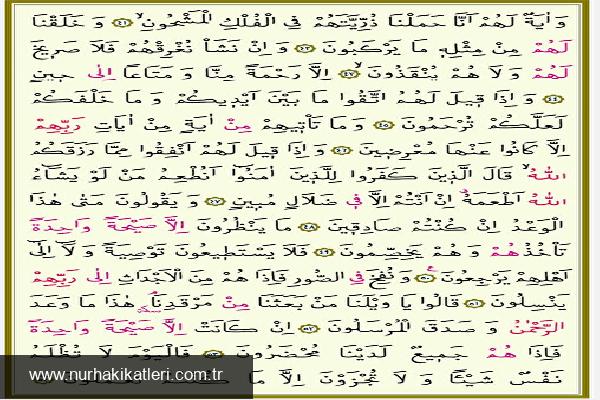 وَ اٰيَةٌ لَهُمْ اَنَّا حَمَلْنَا ذُرِّيَّتَهُمْ فِي الْفُلْكِ الْمَشْحُونِۙ ﴿٤١﴾ وَ خَلَقْنَا
لَهُمْ مِنْ مِثْلِهٖ مَا يَرْكَبُونَ ﴿٤٢﴾ وَ اِنْ نَشَأْ نُغْرِقْهُمْ فَلَا صَرٖيخَ
لَهُمْ وَ لَا هُمْ يُنْقَذُونَۙ ﴿٤٣﴾ اِلَّا رَحْمَةً مِنَّا وَ مَتَاعًا اِلٰى حٖينٍ
﴿٤٤﴾ وَ اِذَا قٖيلَ لَهُمُ اتَّقُوا مَا بَيْنَ اَيْدٖيكُمْ وَ مَا خَلْفَكُمْ
لَعَلَّكُمْ تُرْحَمُونَ ﴿٤٥﴾ وَ مَا تَاْتٖيهِمْ مِنْ اٰيَةٍ مِنْ اٰيَاتِ رَبِّهِمْ
اِلَّا كَانُوا عَنْهَا مُعْرِضٖينَ ﴿٤٦﴾ وَ اِذَا قٖيلَ لَهُمْ اَنْفِقُوا مِمَّا رَزَقَكُمُ
اللّٰهُۙ قَالَ الَّذٖينَ كَفَرُوا لِلَّذٖينَ اٰمَنُٓوا اَنُطْعِمُ مَنْ لَوْ يَشَٓاءُ
اللّٰهُ اَطْعَمَهُۗ اِنْ اَنْتُمْ اِلَّا فٖي ضَلَالٍ مُبٖينٍ ﴿٤٧﴾ وَ يَقُولُونَ مَتٰى هٰذَا
الْوَعْدُ اِنْ كُنْتُمْ صَادِقٖينَ ﴿٤٨﴾ مَا يَنْظُرُونَ اِلَّا صَيْحَةً وَاحِدَةً
تَاْخُذُهُمْ وَ هُمْ يَخِصِّمُونَ ﴿٤٩﴾ فَلَا يَسْتَطٖيعُونَ تَوْصِيَةً وَ لَٓا اِلٰٓى
اَهْلِهِمْ يَرْجِعُونَ ﴿٥٠﴾ وَ نُفِخَ فِي الصُّورِ فَاِذَا هُمْ مِنَ الْاَجْدَاثِ اِلٰى رَبِّهِمْ
يَنْسِلُونَ ﴿٥١﴾ قَالُوا يَا وَيْلَنَا مَنْ بَعَثَنَا مِنْ مَرْقَدِنَا هٰذَا مَا وَعَدَ
الرَّحْمٰنُ وَ صَدَقَ الْمُرْسَلُونَ ﴿٥٢﴾ اِنْ كَانَتْ اِلَّا صَيْحَةً وَاحِدَةً
فَاِذَا هُمْ جَمٖيعٌ لَدَيْنَا مُحْضَرُونَ ﴿٥٣﴾ فَالْيَوْمَ لَا تُظْلَمُ
نَفْسٌ شَيْئًا وَ لَا تُجْزَوْنَ اِلَّا مَا
www.nurhakikatleri.com.tr